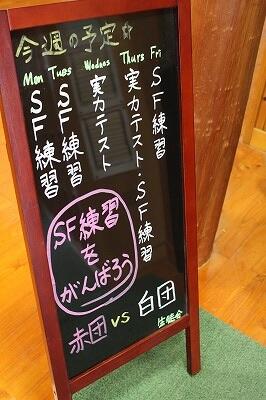 今週の予定☆
Mon Tues Wednes Thurs Fri
SF練習
SF練習
実力テスト
実力テスト・SF練習
SF練習
SF練習
を
がんばろう
赤団 vs 白団
生徒会